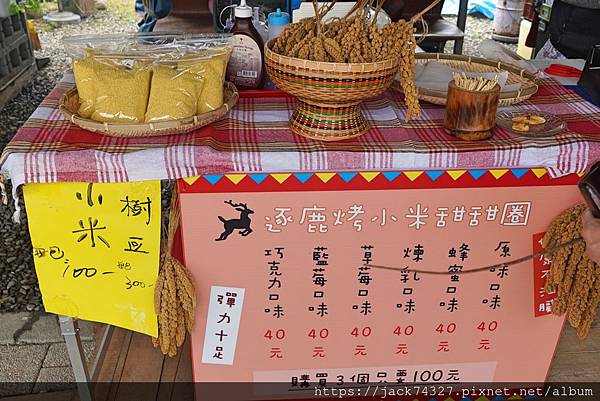 小米
一包
100-
樹豆
一包
300-
逐鹿烤小米甜甜圈
彈力十足
原味
40元
蜂蜜口味
40元
煉乳口味
40元
草莓口味
40元
藍莓口味
40元
巧克力口味
40元
購買3個只要100元
https://jack74327.pixnet.net/album